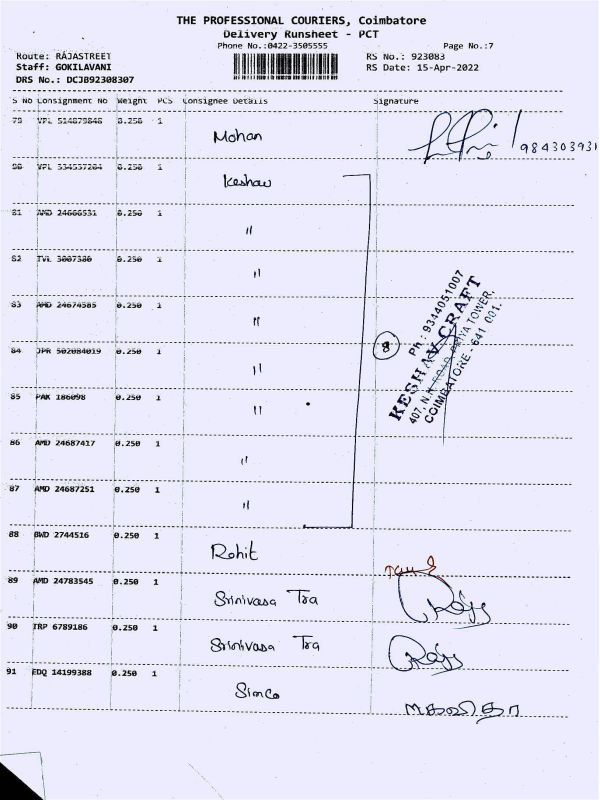 THE PROFESSIONAL COURIERS, Coimbatore
Delivery Runsheet - PCT
Phone No.:0422-3505555
Page No.:7
Route: RAJASTREET
RS No.: 923083
Staff: GOKILAVANI
RS Date: 15-Apr-2022
DRS No.: DCJB92308307
S No Consignment No Weight PCS Consignee Details Signature
79 VPL 514879848 0.250 1 Mohan 984303931
80 VPL 534537264 0.250 1 Keshav
81 AMD 24666531 0.250 1 "
82 TVL 3007380 0.250 1 "
83 AMD 24674585 0.250 1 "
84 JPR 502084019 0.250 1 " 8
85 PAK 186098 0.250 1 "
86 AMD 24687417 0.250 1 "
87 AMD 24687251 0.250 1 "
Ph : 9344051007
KESHAV CRAFT
407, N.H. ROAD, PRIYA TOWER,
COIMBATORE - 641 001.
88 BWD 2744516 0.250 1 Rohit
89 AMD 24783545 0.250 1 Srinivasa Tra
90 TRP 6789186 0.250 1 Srinivasa Tra
91 EDQ 14199388 0.250 1 Simco